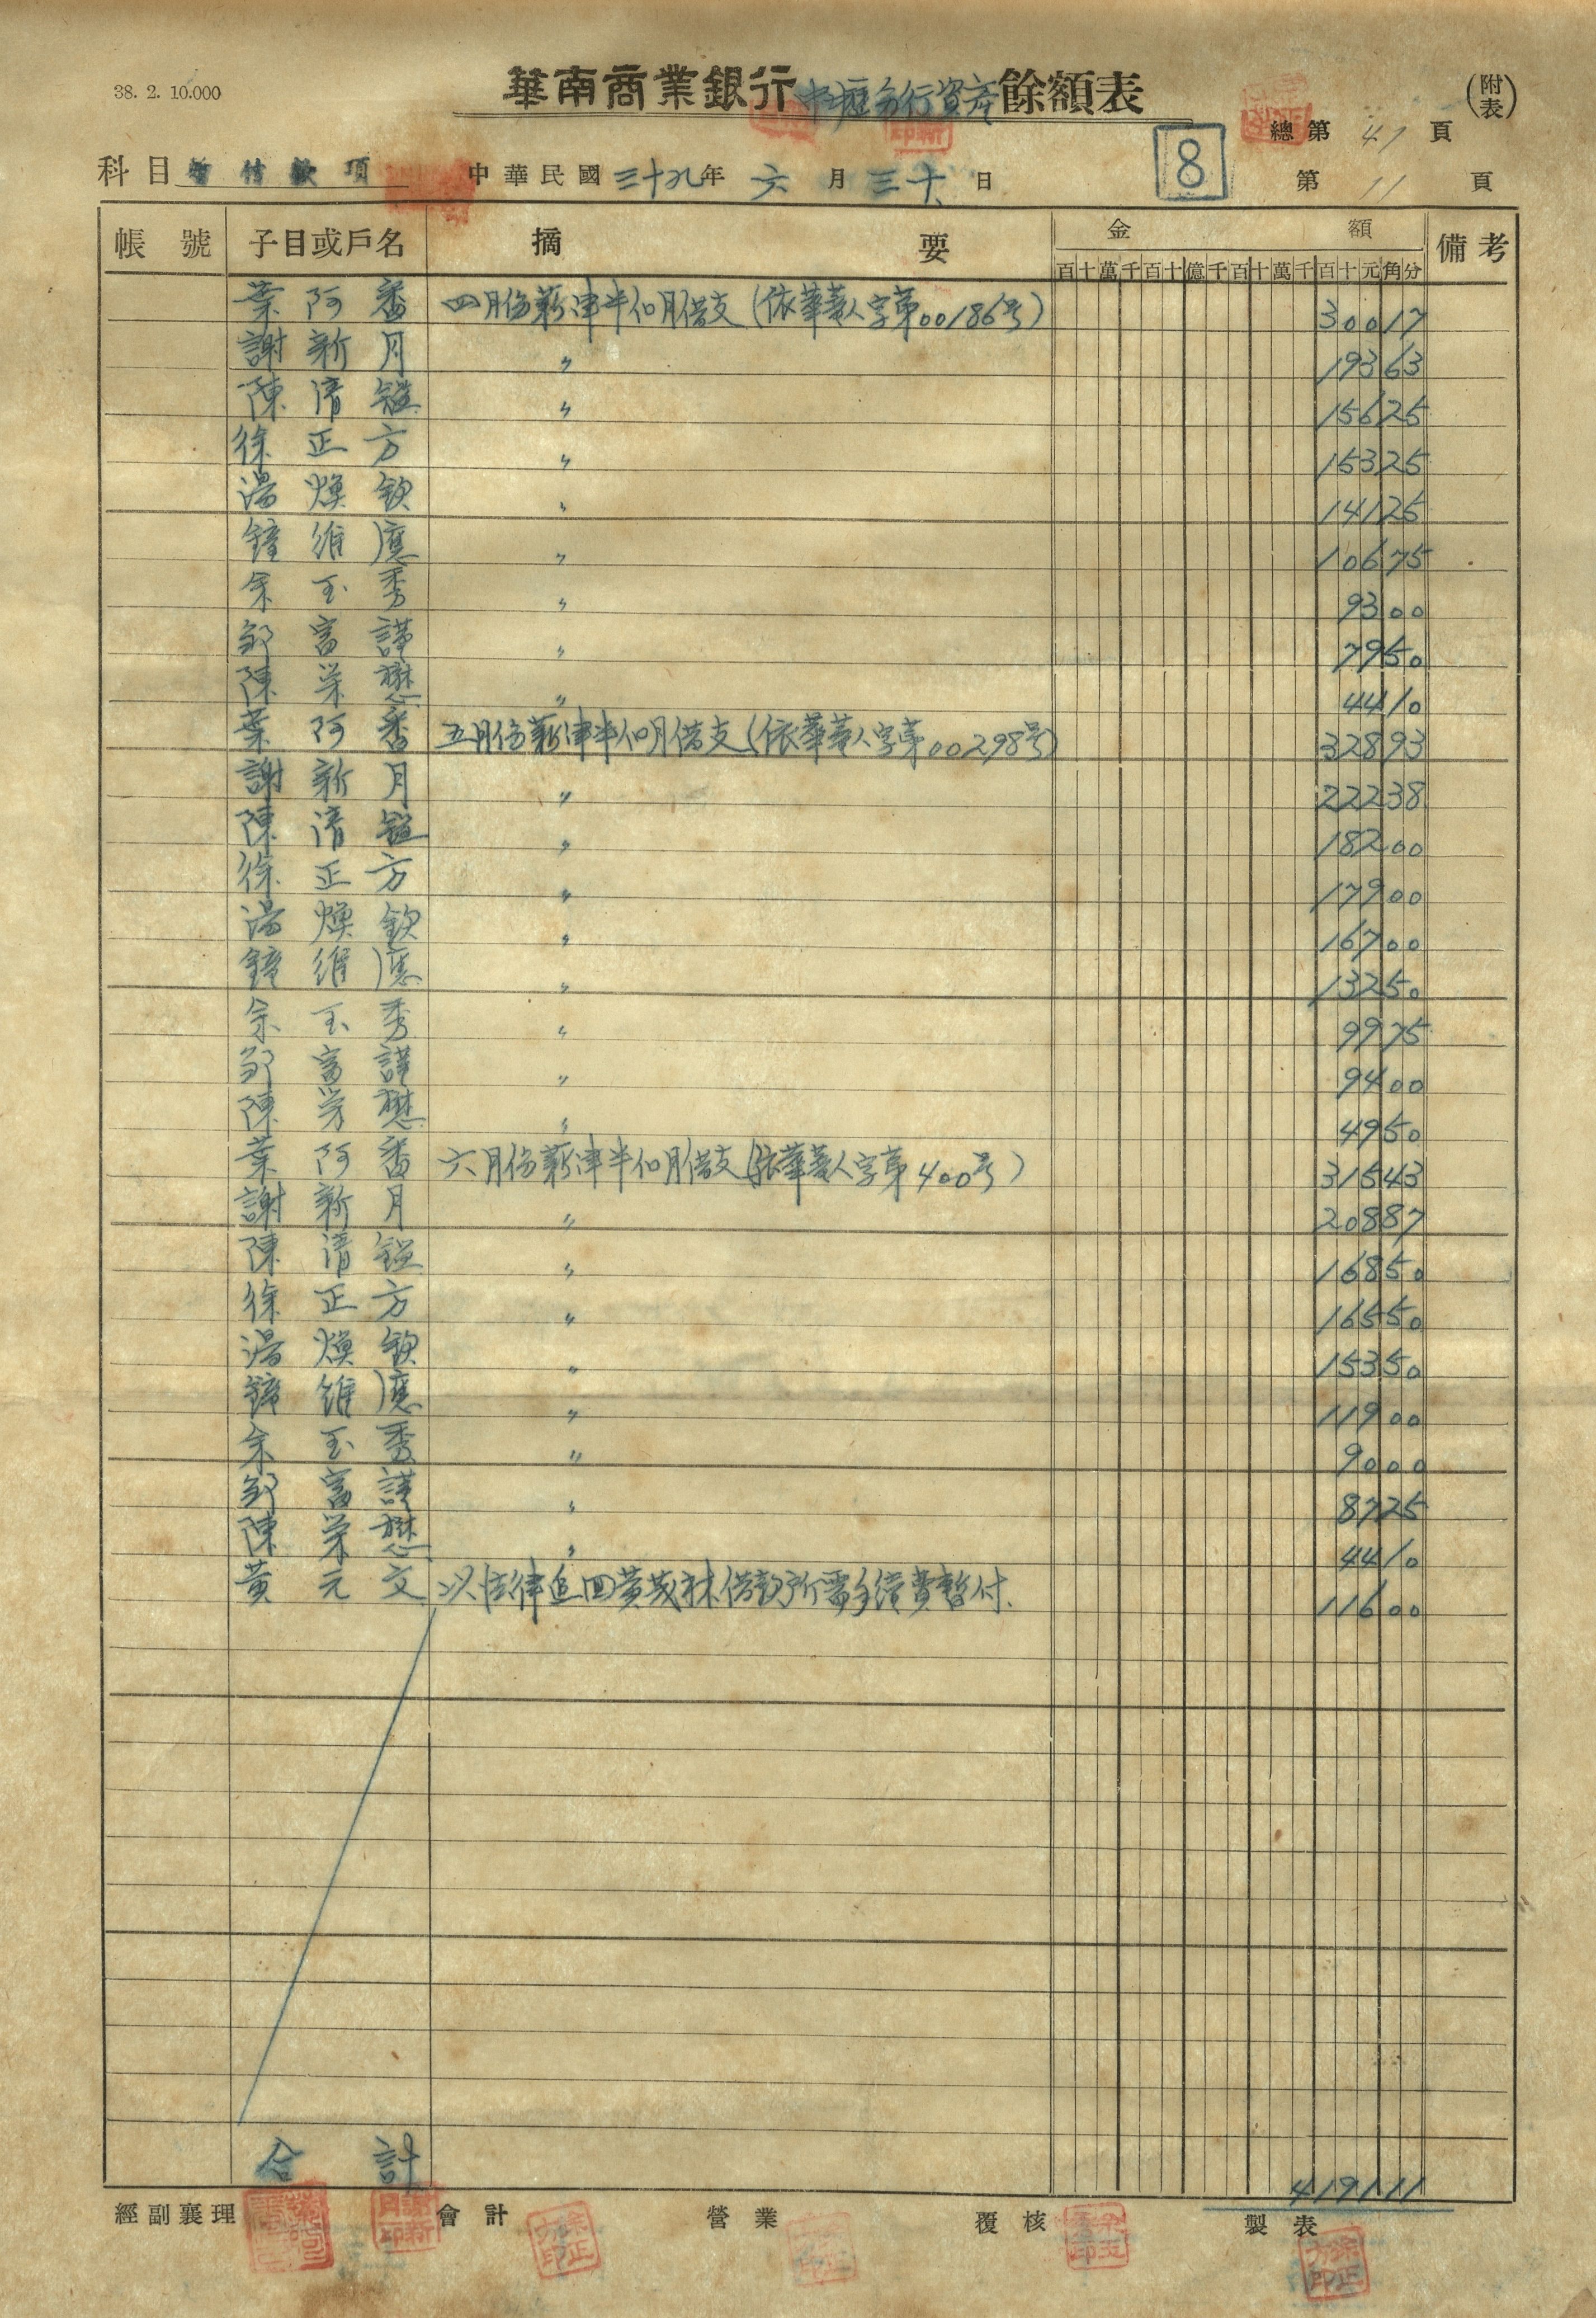 38. 2. 10.000
華南商業銀行中壢分行資產餘額表
(附表)
總第 41 頁
科目 暫付款項 中華民國三十九年六月三十日 8 第 11 頁
帳號 子目或戶名 摘要 金額 備考
百十萬千百十億千百十萬千百十元角分
葉阿番 四月份薪津半個月借支(依華華人字第00186号) 30017
謝新月 〃 19363
陳清 〃 15625
徐正方 〃 15325
湯煥欽 〃 14125
鐘維應 〃 10675
余玉秀 〃 9300
鄒富謹 〃 7950
陳榮懋 〃 4410
葉阿番 五月份薪津半個月借支(依華華人字第00298号) 32893
謝新月 〃 22238
陳清 〃 18200
徐正方 〃 17900
湯煥欽 〃 16700
鐘維應 〃 13250
余玉秀 〃 9975
鄒富謹 〃 9400
陳榮懋 〃 4950
葉阿番 六月份薪津半個月借支(依華華人字第400号) 31543
謝新月 〃 20887
陳清 〃 16850
徐正方 〃 16550
湯煥欽 〃 15350
鐘維應 〃 11900
余玉秀 〃 9000
鄒富謹 〃 8725
陳榮懋 〃 4410
黃元文 以法律追回黃茂林借款所需手續費暫付 11600
合計 419111
經副襄理 會計 營業 覆核 製表